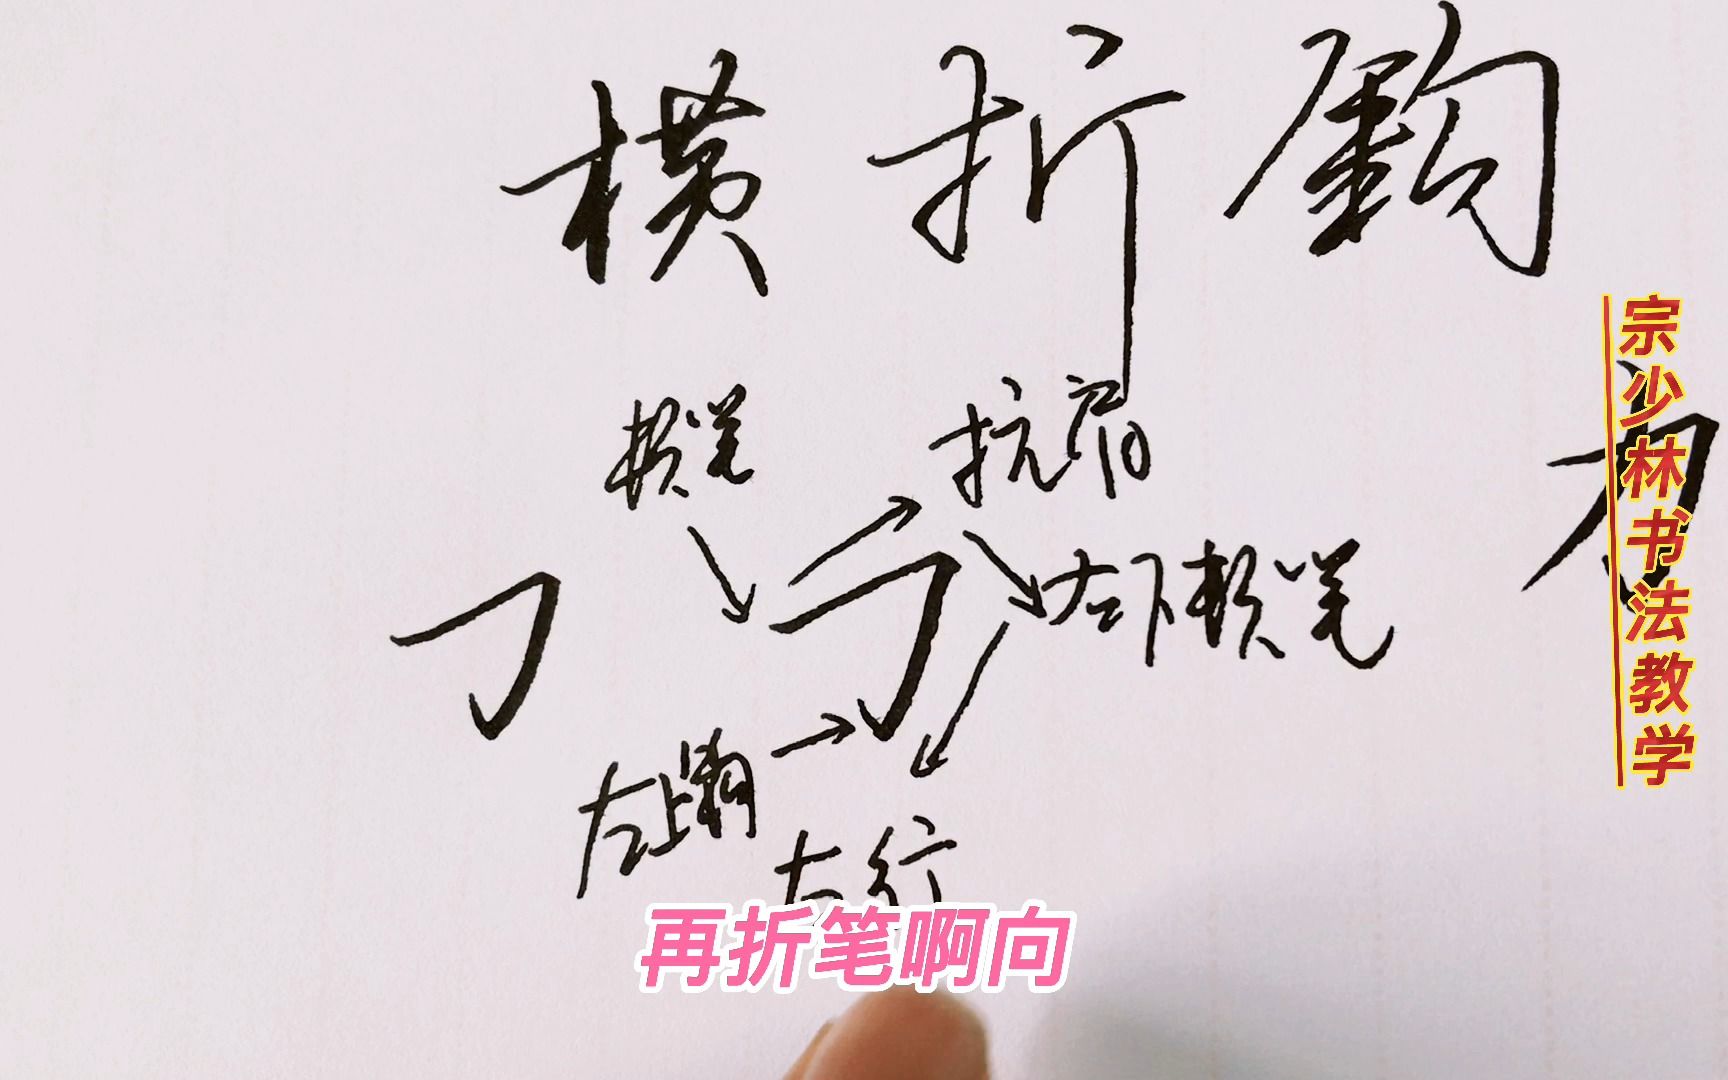 横折鈎
按笔
抗肩
左下按笔
左上鈎
左行
宗少林书法教学
再折笔啊向